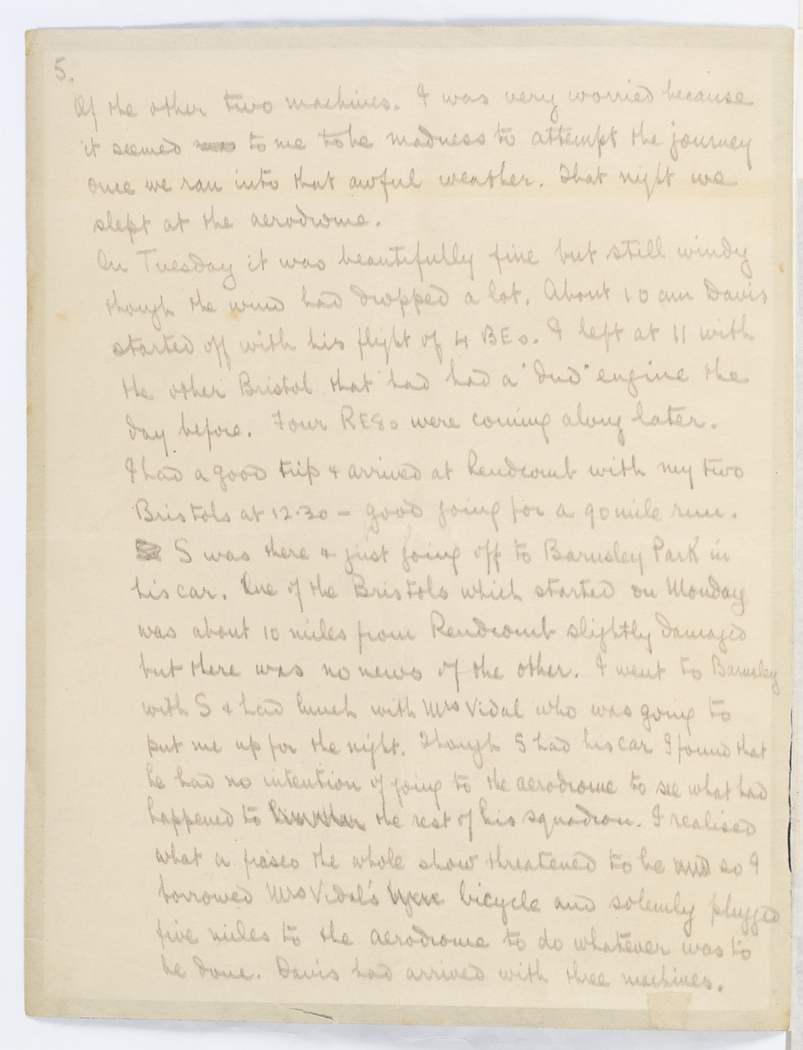 5.
Of the other two machines. I was very worried because
it seemed to me to be madness to attempt the journey
once we ran into that awful weather. That night we
slept at the aerodrome.
On Tuesday it was beautifully fine but still windy
though the wind had dropped a lot. About 10 am Davis
started off with his flight of 4 BEs. I left at 11 with
the other Bristol that had had a "dud" engine the
day before. Four RE8s were coming along later.
I had a good trip & arrived at Rendcomb with my two
Bristols at 12.30 — good going for a 90 mile run.
S was there & just going off to Barnsley Park in
his car. One of the Bristols which started on Monday
was about 10 miles from Rendcomb slightly damaged
but there was no news of the other. I went to Barnsley
with S & had lunch with Mrs Vidal who was going to
put me up for the night. Though S had his car I found that
he had no intention of going to the aerodrome to see what had
happened to the rest of his squadron. I realised
what a fiasco the whole show threatened to be so I
borrowed Mrs Vidal's bicycle and solemly plugged
five miles to the aerodrome to do whatever was to
be done. Davis had arrived with three machines.